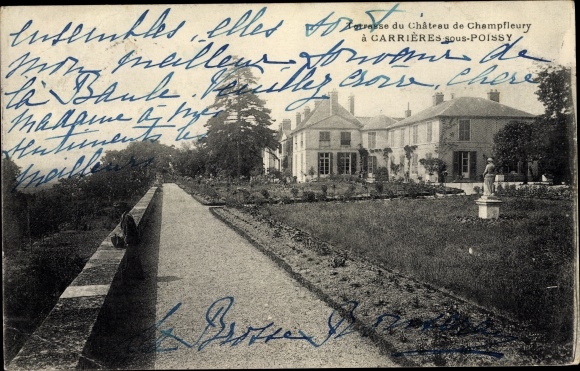 Terrasse du Château de Champfleury
à CARRIÈRES-sous-POISSY
ensembles, elles sont
mon meilleur souvenir de
la Baule. Veuillez croire, chère
Madame à mes
sentiments les
meilleurs
La Brosse